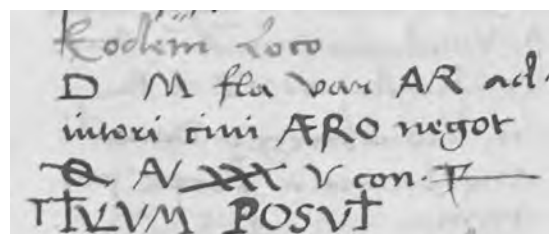 Eodem Loco
D M fla var AR ad
iutori civi ÆRO negot
AV XXX V con. F
TITVLVM POSVIT